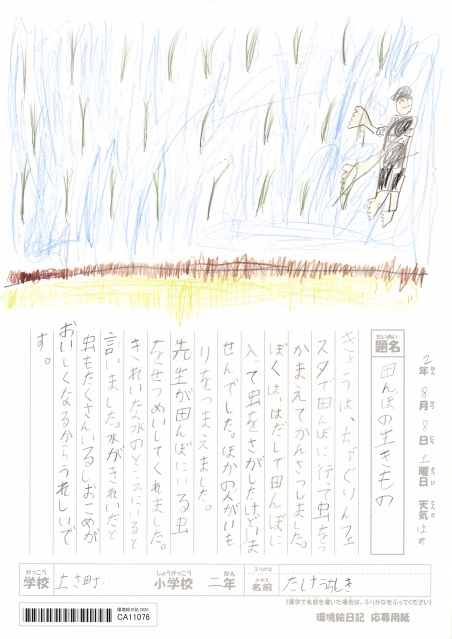 2年 8月 8日 土曜日 天気 はれ
ねん がつ にち よう び てんき
だいめい
題名 田んぼの生きもの
きょうは、ちゃぐりんフェ
スタで田んぼに行って虫をつ
かまえてかんさつしました。
ぼくは、はだしで田んぼに
入って虫をさがしたけどいま
せんでした。ほかの人がいも
りをつかまえました。
先生が田んぼにいる虫
をせつめいしてくれました。
きれいな水のところにいると
言いました。水がきれいだと
虫もたくさんいるしおこめが
おいしくなるからうれしいで
す。
がっこう しょうがっこう ねん ふりがな なまえ
学校 小学校 二年 名前
(漢字で名前を書いた場合は、ふりがなをふってください)
環境絵日記 2020
CA11076
環境絵日記 応募用紙